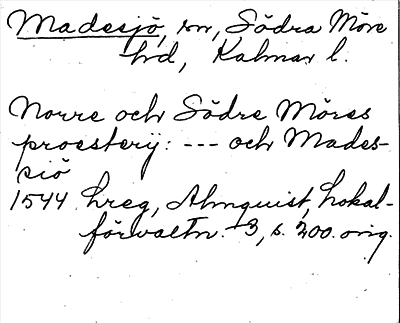 Madesjö, sn, Södra Möre
hd, Kalmar l.
Norre och Södre Möres
proesterij: --- och Mades-
siö
1544 hreg, Almquist, Lokal-
förvaltn. 3, s. 200. orig.